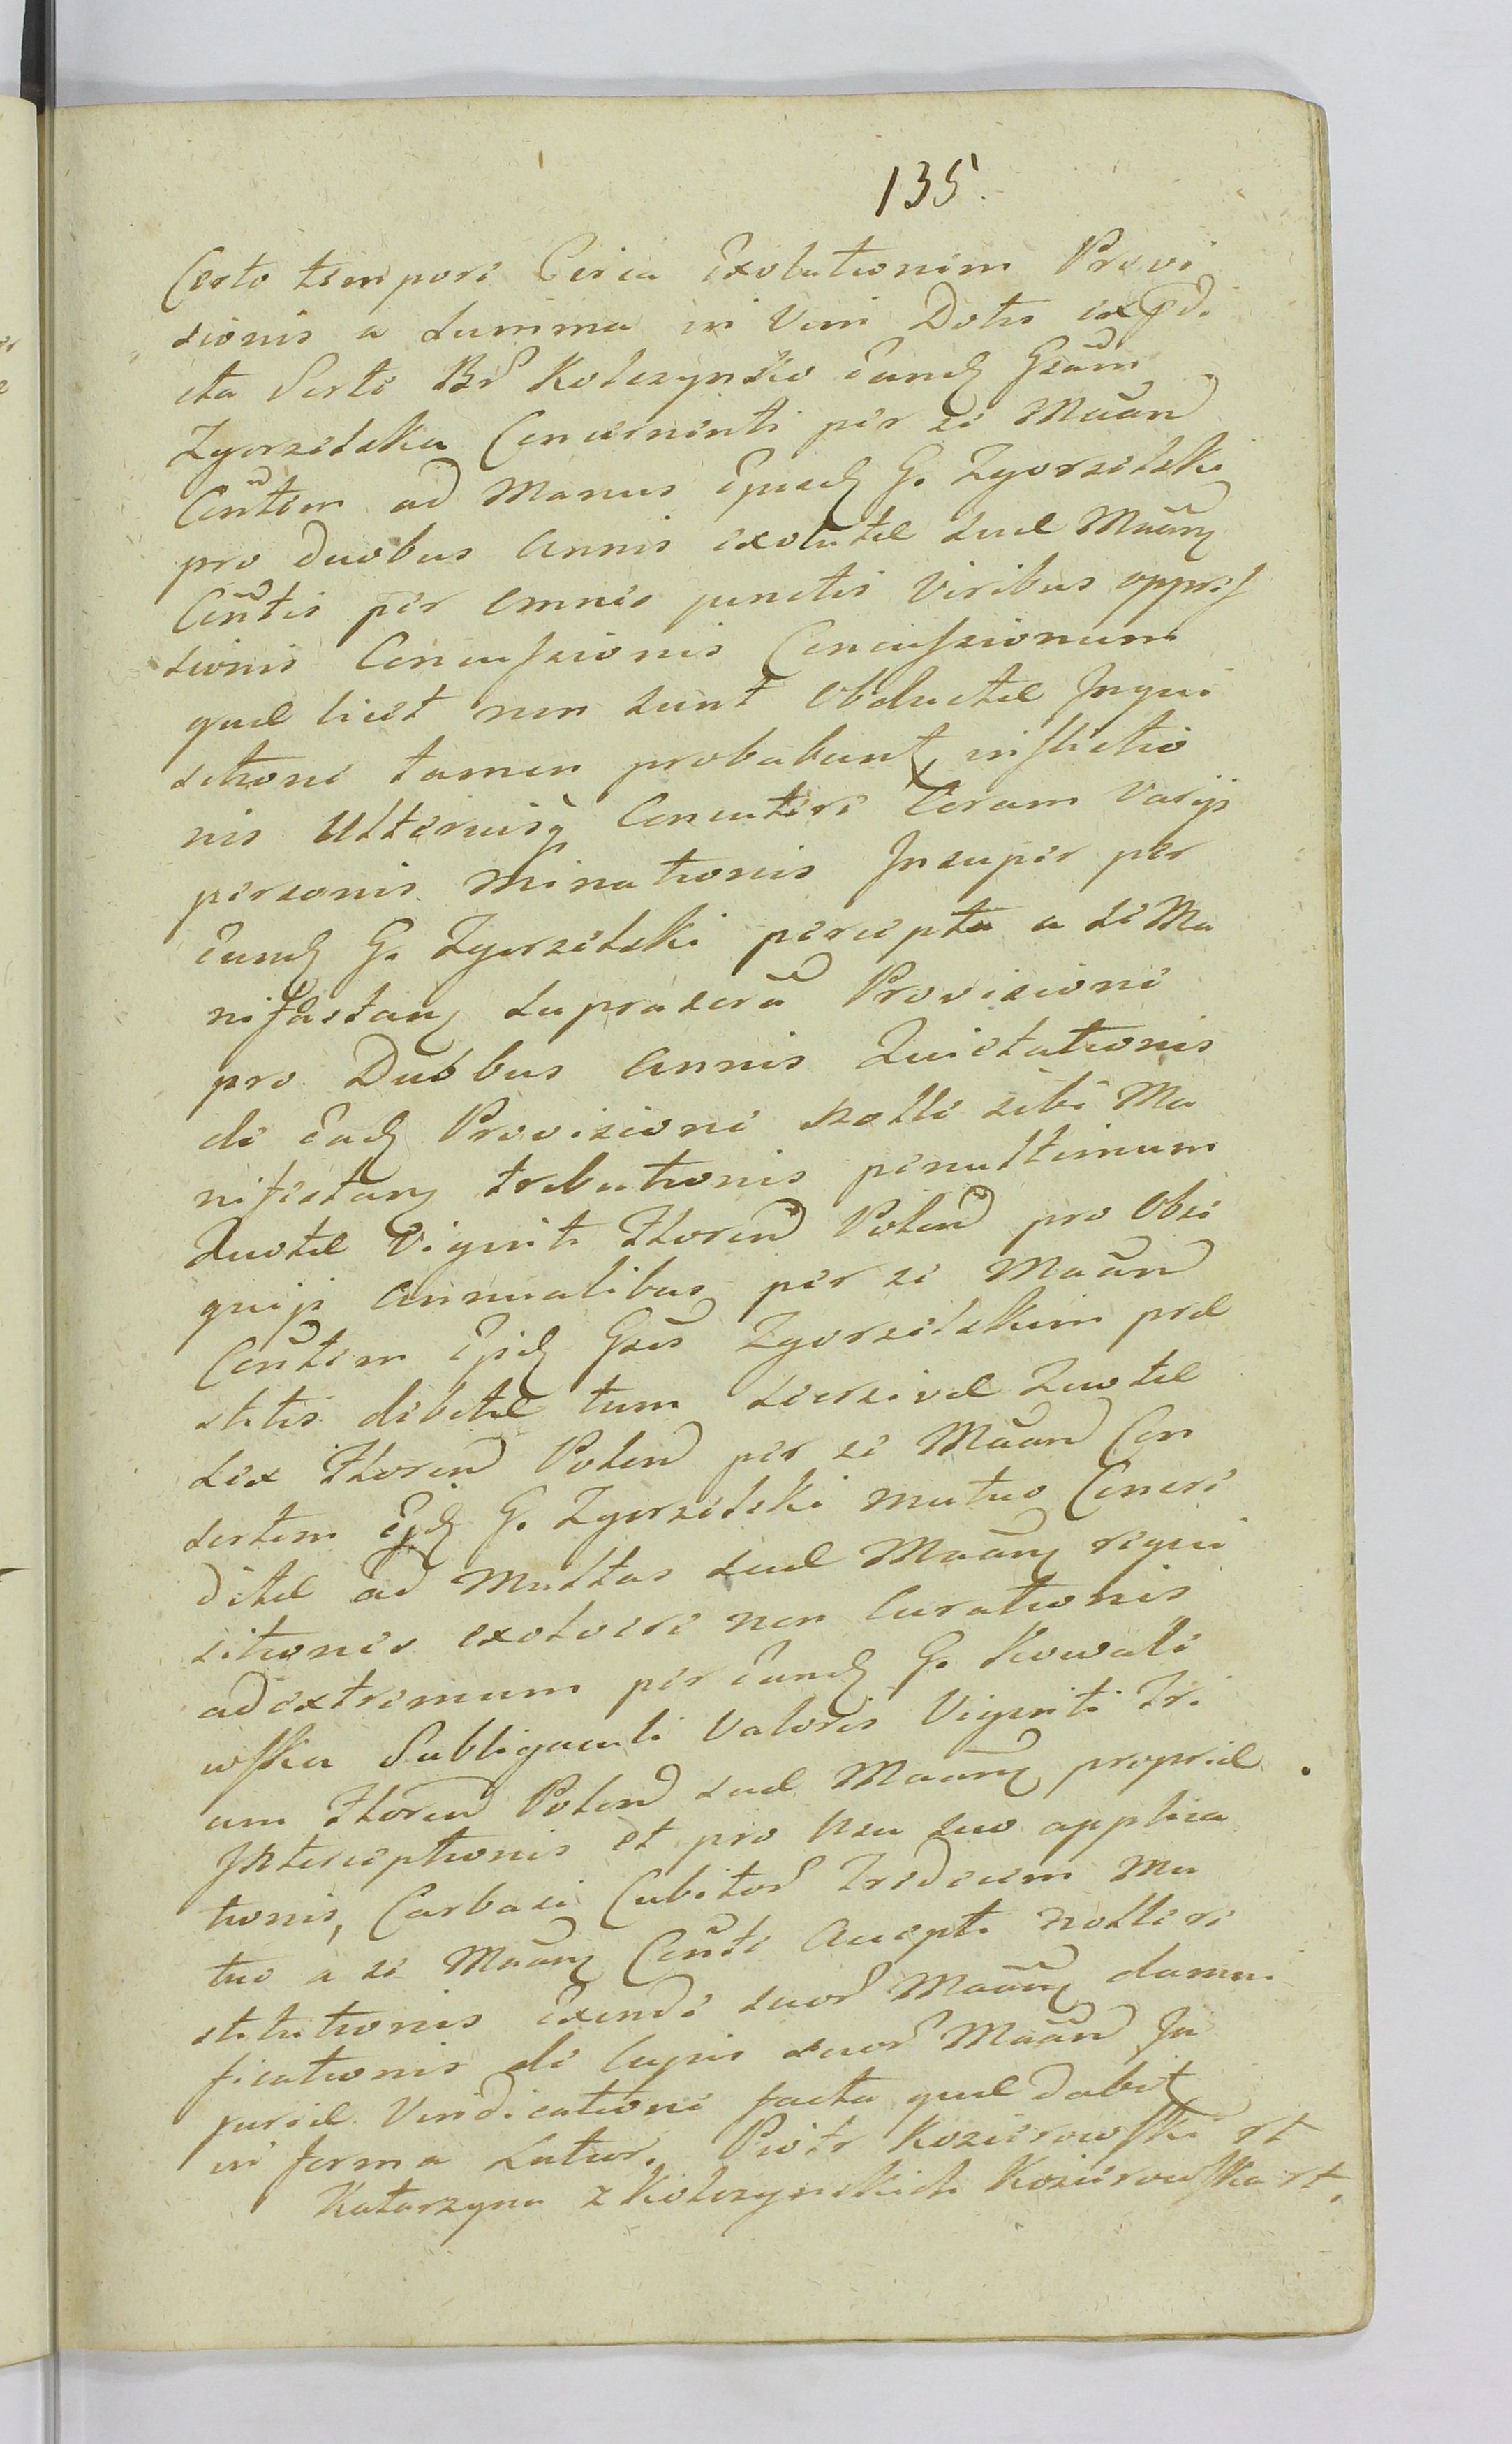 135.
Certo tempore Circa Exolutionem Provi
sionis a Summa in Vim Dotis expdi
cta Sorte Bs Kolczynsko Eand Gsam
Zgorzelska Concernenti per se Maand
Contem ad Manus Ejusd G. Zgorzelski
pro duobus Annis exolutæ suæ Maang
Contis per omnes punctis Viribus oppres
sionis Concussionis Concussionum
quæ licet non sunt Obductæ Inqui
sitione tamen probabunt, inflictio
nis Ulteriusq Concutere Coram Varijs
personis Minationis Insuper per
Eund G. Zgorzelski percepta a se Ma
nifestang suprascra Provisione
pro Duobus Annis Quietationis
de Ead Provisione Nolle sibi Ma
nifestang tributionis penultimum
Quotæ Viginti Floren Polon pro Obse
quijs Annualibus per se Maand
Contem Ejd Gsis Zgorzelskim præ
stitis debitæ tum Successivæ Quotæ
Sex Floren Polon per se Maand Con
sortem Ejd G. Zgorzelski mutuo Concre
ditæ ad Multas suæ Maang requi
sitiones exolvere non Curationis
ad extremum per Eand G. Kowale
wska Subligaculi Valoris Viginti Tri
um Floren Polon suæ Maang propriæ
Interceptionis et pro Usu suo applica
tionis, Carbasi Cubitor Tredecim Mu
tuo a se Maang Conte Accepti Nolle re
stitutionis Exinde suor Maang damni
ficationis de lucris suor Maand In
juriæ Vindicatione facta quæ dabit
in forma Latior. Piotr Kozierowski st
Katarzyna z Kolczynskich Kozierowska st.